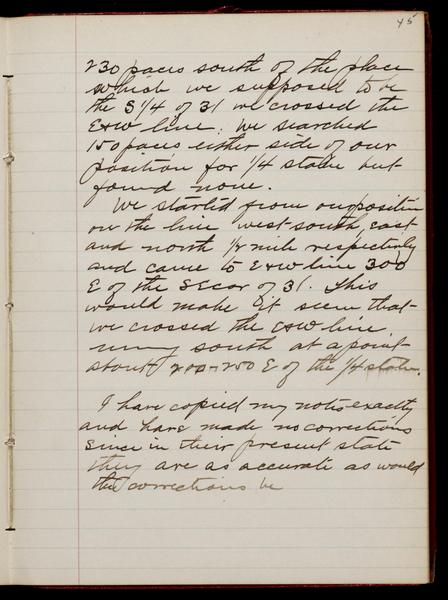 45
230 paces south of the place
which we supposed to be
the S 1/4 of 31 we crossed the
E+W line; We searched
150 paces either side of our
position for 1/4 stake but
found none.
We started from our position
on the line west south, east
and north 1/2 mile respectively
and came to E+W line 300
E of the SE cor of 31. This
would make it seem that
we crossed the E+W line
south at a point
about 200-250 E of the 1/4 stake.
I have copied my notes exactly
and have made no corrections
since in their present state
they are as accurate as would
the corrections be